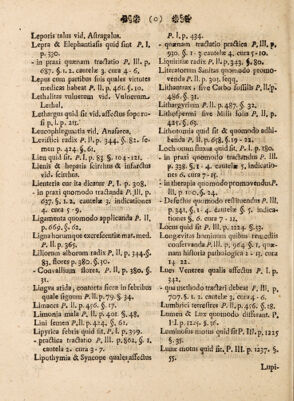 (0)
Leporis talus vid. Astragalus.
Lepra & Elephantiasis quid sint P. I.
p. 330.
- in praxi quænam tractatio P. III. p.
687. §. 1. 2. cautelæ 3. cura 4 - 6.
Lepus cum partibus suis quales virtutes
medicas habeat P. II. p. 461. §. 10.
Lethalitas vulnerum vid. Vulnerum
Lethal.
Lethargus quid sit vid. affectus soporo-
si p. I. p. 211.
Leucophlegmatia vid. Anasarca.
Levistici radix P. II. p. 344. §. 82. se-
men p. 424. §. 61.
Lien quid sit. P. I. p. 83 §. 104 - 121.
Lienis & hepatis scirrhus & infarctus
vid. scirrhus.
Lienteria cur ita dicatur P. I. p. 308.
- in praxi quomodo tractanda P. III. p.
637. §. 1. 2. cautelæ 3. indicationes
4. cura 5 - 9.
Ligamenta quomodo applicanda P. II.
p. 669. §. 62.
Ligna horumque excrescentiæ mat. med.
P. II. p. 365.
Liliorum alborum radix P. II. p. 344. §.
83. flores p. 380. §. 30.
- Convallium flores. P. II. p. 380. §.
31.
Lingua arida, contorta sicca in febribus
quale signum P. II. p. 79. §. 34.
Limaces P. II. p. 466. §. 17.
Limonia mala P. II. p. 401. §. 48.
Lini semen P. II. p. 424. §. 62.
Lipyrica febris quid sit. P. I. p. 399.
- practica tractatio P. III. p. 862. §. 1.
cautela 2. cura 3 - 7.
Lipothymia & Syncope quales affectus
P. I. p. 434.
- quænam tractatio practica P. III. p.
930. §. 1 - 3 cautelæ 4. cura 5 - 10.
Liquiritiæ radix P. II. p. 343. §. 80.
Literatorum Sanitas quomodo promo-
venda P. II. p. 301. seqq.
Lithantrax s. sive Carbo fossilis P. II. p.
486. §. 31.
Lithargyrium P. II. p. 487. §. 32.
Lithospermi sive Milii solis P. II. p.
425. §. 63.
Lithotomia quid sit & quomodo adhi-
benda P. II. p. 658. §. 19 - 22.
Lochiorum fluxus quid sit. P. I. p. 180.
- in praxi quomodo tractandus P. III.
p. 338. §. 1 - 4. cautelæ 5. indicatio-
nes 6. cura 7 - 15.
- in therapia quomodo promovendus. P.
III. p. 100. §. 24.
- Defectus quomodo restituendus P. III.
p. 341. §. 1 - 4. cautelæ §. 5. indica-
tiones 6. cura 7 - 11.
Locus quid sit P. III. p. 1224. §. 13.
Longævitas hominum quibus remediis
conservanda P. III. p. 964. §. 1. quæ-
nam historia pathologica 2 - 13. cura
14 - 22.
Lues Venerea qualis affectus P. I. p.
342.
- qua methodo tractari debeat P. III. p.
707. §. 1. 2. cautelæ 3. cura 4. - 6.
Lumbrici terrestres P. II. p. 466. §. 18.
Lumen & Lux quomodo differant. P.
III. p. 1224. §. 36.
Luminosus motus quid sit P. III. p. 1225
§. 35.
Lunæ motus quid sit. P. III. p. 1237. §.
55.
Lupi-